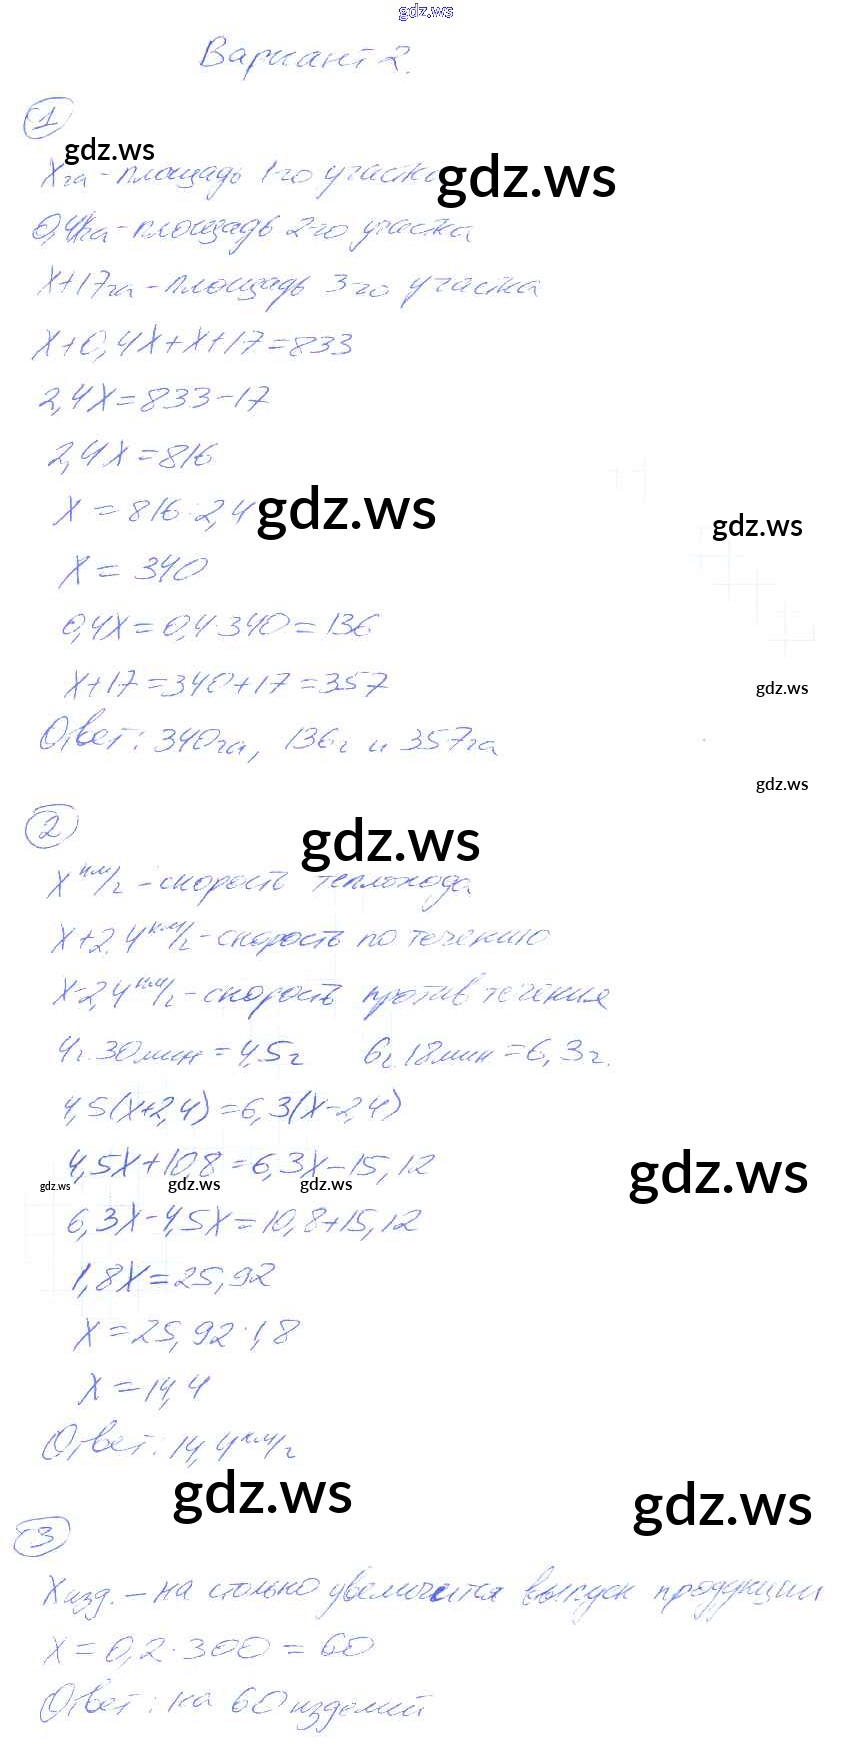 gdz.ws
Вариант 2.
1
gdz.ws
x га - площадь 1-го участка
gdz.ws
0,4x га - площадь 2-го участка
x+17 га - площадь 3-го участка
x+0,4x+x+17=833
2,4x=833-17
2,4x=816
x=816:2,4
gdz.ws
gdz.ws
x=340
0,4x=0,4·340=136
x+17=340+17=357
gdz.ws
Ответ: 340га, 136г и 357га
gdz.ws
2
gdz.ws
x км/г - скорость теплохода
x+2,4 км/г - скорость по течению
x-2,4 км/г - скорость против течения
4г.30мин=4,5г 6г.18мин=6,3г.
4,5(x+2,4)=6,3(x-2,4)
4,5x+10,8=6,3x-15,12
gdz.ws
gdz.ws gdz.ws gdz.ws
6,3x-4,5x=10,8+15,12
1,8x=25,92
x=25,92:1,8
x=14,4
Ответ: 14,4 км/г
gdz.ws
gdz.ws
3
x изд. - на столько увеличится выпуск продукции
x=0,2·300=60
Ответ: на 60 изделий